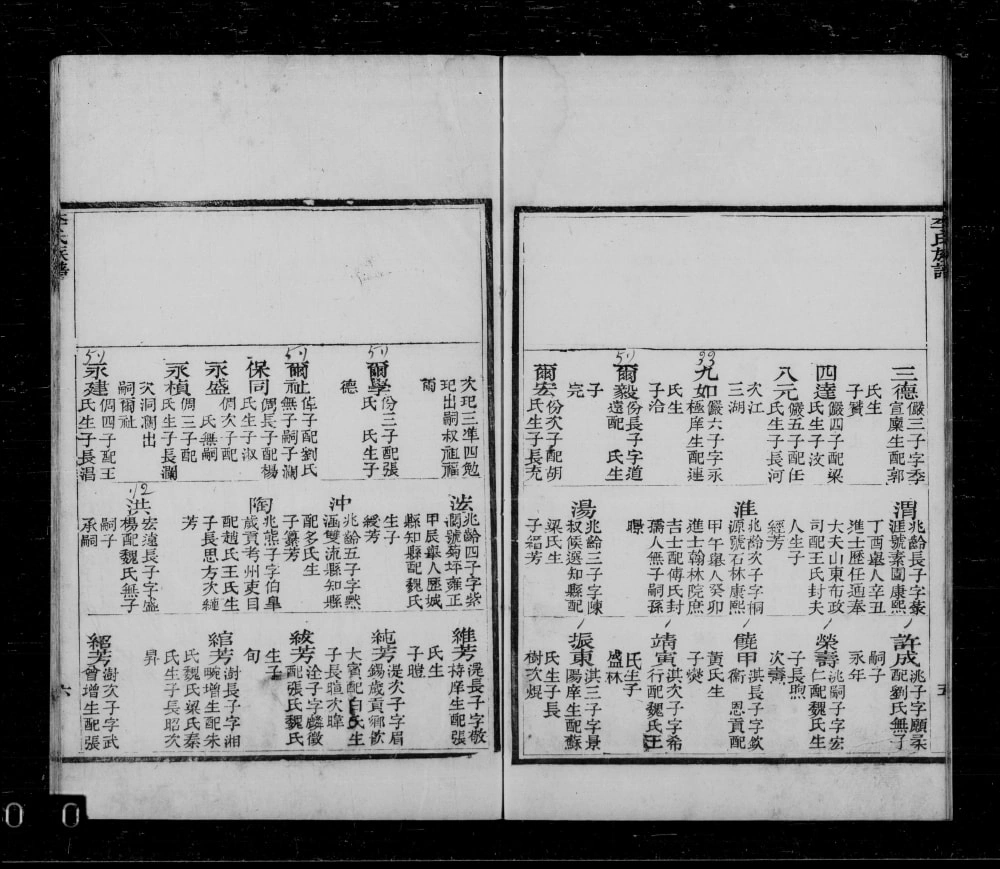 李氏族譜
三德 儼三子字季
宣廩生配郭
氏生
子贇
四達 儼四子配梁
氏生子汝
八元 儼五子配任
氏生子長河
次江
三湖
33
九如 儼六子字永
極庠生配連
氏生
子治
51
爾毅 份長子字道
遠配 氏生
子
完
爾宏 份次子配胡
氏生子長充
渭 兆齡長子字
涯號素園康熙
丁酉舉人辛丑
進士歷任通奉
大夫山東布政
司配王氏封夫
人生子
經芳
淮 兆齡次子字桐
源號石林康熙
甲午舉人癸卯
進士翰林院庶
吉士配傅氏封
孺人無子嗣孫
湯 兆齡三子字陳
叔候選知縣配
梁氏生
子縉芳
許成 洮子字願
配劉氏無子
嗣子
永年
榮壽 洮嗣子字宏
仁配魏氏生
子長煦
次燾
饒甲 淇長子字欽
衡 恩貢配
黃氏生
子㷼
靖寅 淇次子字希
行配魏氏王
氏生子
盛林
振東 淇三子字景
陽庠生配蘇
氏生子長
樹次焜
五
李氏族譜
次玘三準四勉
玘出嗣叔祖福
爾
51
爾學 份三子配張
氏 氏生子
德
51
爾祉 倖子配劉氏
無子嗣子瀾
保同 偶長子配楊
氏生子淑
永盛 倜次子配
氏無嗣
永楨 倜三子配
氏生子長瀾
次洞瀾出
嗣爾祉
51
永建 倜四子配王
氏生子長淐
浤 兆齡四子字紫
瀾號菊坪雍正
甲辰舉人歷城
縣知縣配魏氏
生子
綬芳
沖 兆齡五子字熙
涵雙流縣知縣
配多氏生
子纂芳
陶 兆熊子字伯皐
歲貢考州吏目
配趙氏王氏生
子長思方次纏
芳
12
洪 宏遠長子字盛
楊配魏氏無子
嗣子
承嗣
維芳 湜長子字敬
持庠生配張
氏生
子瞪
純芳 湜次子字眉
錫歲貢鄉飲
大賓配白氏生
子長暄次暐
紱芳 洤子字麟徵
配張氏魏氏
生子
旬
綰芳 澍長子字湘
畹增生配朱
氏魏氏梁氏秦
氏生子長昭次
昇
縕芳 澍次子字武
曾增生配張
六
0 0